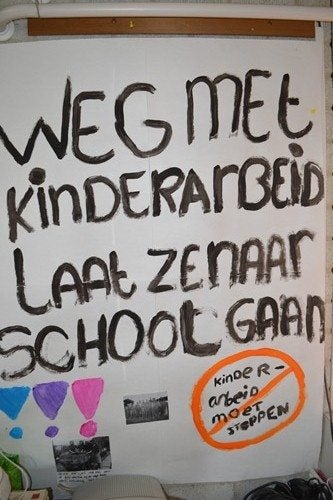 WEG MET
KINDERARBEID
LAAT ZE NAAR
SCHOOL GAAN
!!!
KINDER-
arbeid
moet
STOPPEN